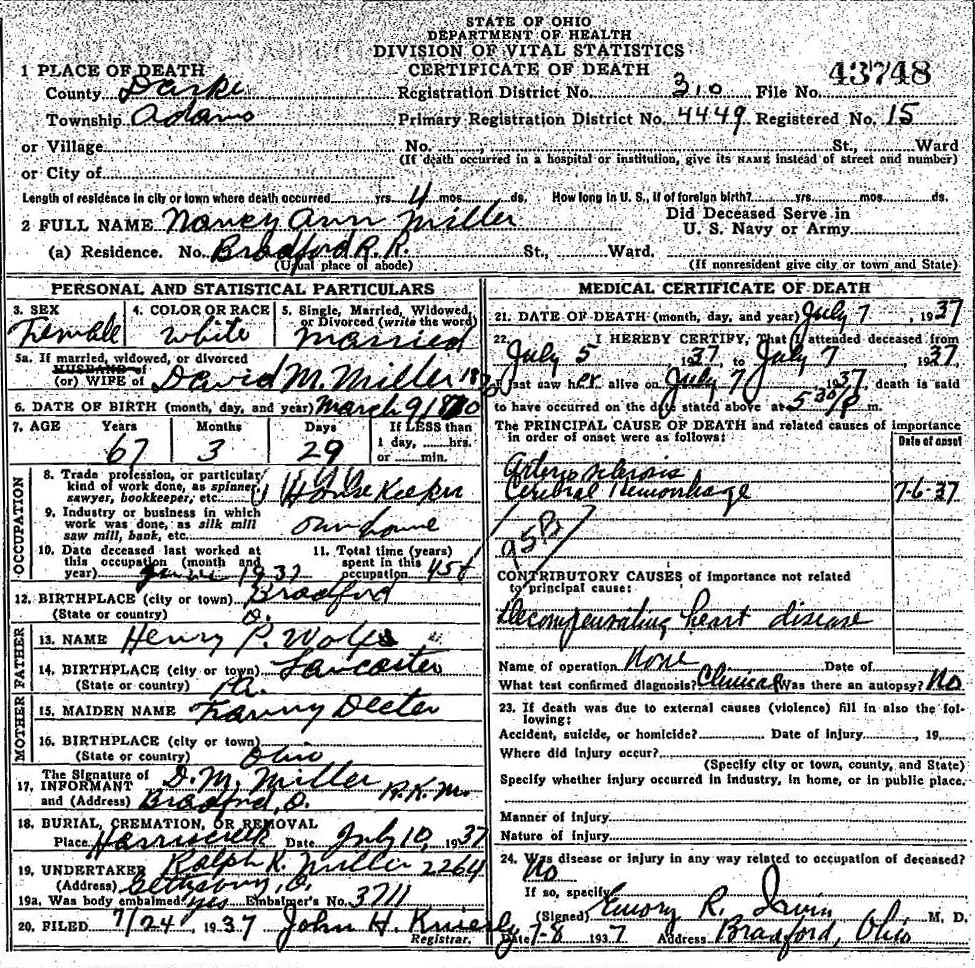 STATE OF OHIO
DEPARTMENT OF HEALTH
DIVISION OF VITAL STATISTICS
CERTIFICATE OF DEATH
43748
1 PLACE OF DEATH
County Darke Registration District No. 310 File No.
Township Adams Primary Registration District No. 4449 Registered No. 15
or Village No. , St., Ward
(If death occurred in a hospital or institution, give its NAME instead of street and number)
or City of
Length of residence in city or town where death occurred yrs. 4 mos. ds. How long in U. S., if of foreign birth? yrs. mos. ds.
2 FULL NAME Nancy Ann Miller Did Deceased Serve in U. S. Navy or Army
(a) Residence. No. Bradford R.R. St., Ward.
(Usual place of abode) (If nonresident give city or town and State)
PERSONAL AND STATISTICAL PARTICULARS
3. SEX Female
4. COLOR OR RACE White
5. Single, Married, Widowed, or Divorced (write the word) Married
5a. If married, widowed, or divorced
HUSBAND of
(or) WIFE of David M. Miller
6. DATE OF BIRTH (month, day, and year) March 9 1870
7. AGE Years Months Days If LESS than
1 day, hrs.
or min.
67 3 29
OCCUPATION
8. Trade, profession, or particular
kind of work done, as spinner,
sawyer, bookkeeper, etc. House Keeper
9. Industry or business in which
work was done, as silk mill
saw mill, bank, etc. own home
10. Date deceased last worked at
this occupation (month and
year) June 1937
11. Total time (years)
spent in this
occupation 45
12. BIRTHPLACE (city or town) Bradford
(State or country) O.
FATHER
13. NAME Henry P. Wolfe
14. BIRTHPLACE (city or town) Lancaster
(State or country) Pa.
MOTHER
15. MAIDEN NAME Franny Deeter
16. BIRTHPLACE (city or town)
(State or country) Ohio
17. The Signature of
INFORMANT D. M. Miller
and (Address) Bradford, O.
18. BURIAL, CREMATION, OR REMOVAL
Place Harriscreek Date July 10, 1937
19. UNDERTAKER Ralph R. Miller 2264
(Address) Gettysburg, O.
19a. Was body embalmed yes Embalmer's No. 3711
20. FILED 7/24, 1937 John H. Knierly
Registrar.
MEDICAL CERTIFICATE OF DEATH
21. DATE OF DEATH (month, day, and year) July 7, 1937
22. I HEREBY CERTIFY, That I attended deceased from
July 5 1937, to July 7, 1937
I last saw her alive on July 7 1937, death is said
to have occurred on the date stated above at 5 30/P m.
The PRINCIPAL CAUSE OF DEATH and related causes of importance
in order of onset were as follows:
Date of onset
Arterio sclerosis
Cerebral Hemorrhage 7-6-37
95B
CONTRIBUTORY CAUSES of importance not related
to principal cause:
Decompensating heart disease
Name of operation None Date of
What test confirmed diagnosis? Clinical Was there an autopsy? No
23. If death was due to external causes (violence) fill in also the fol-
lowing:
Accident, suicide, or homicide? Date of injury , 19
Where did injury occur?
(Specify city or town, county, and State)
Specify whether injury occurred in industry, in home, or in public place.
Manner of Injury
Nature of Injury
24. Was disease or injury in any way related to occupation of deceased?
No
If so, specify
(Signed) Emory R. Irvin M. D.
Date 7-8 1937 Address Bradford, Ohio